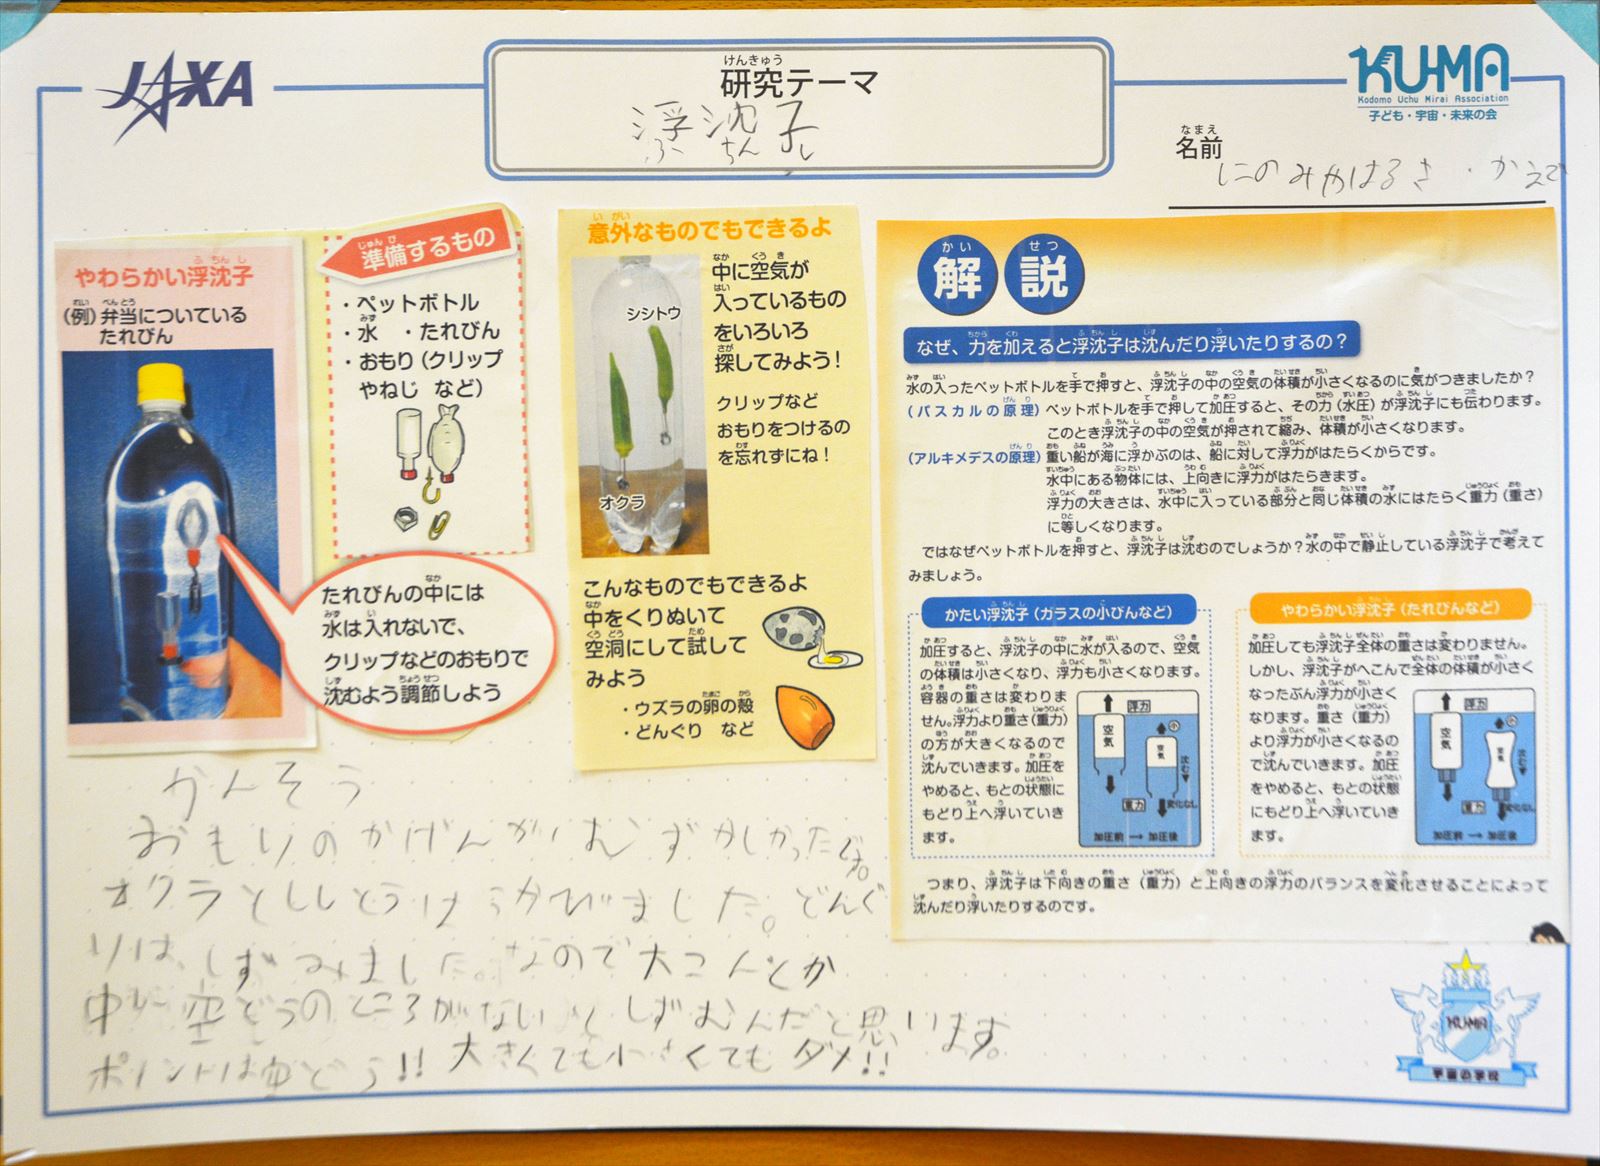 JAXA
研究テーマ
けんきゅう
浮沈子
ふちんし
KUMA
Kodomo Uchu Mirai Association
子ども・宇宙・未来の会
なまえ
名前
にのみやはるき・かえで
やわらかい浮沈子
(例)弁当についている
たれびん
準備するもの
・ペットボトル
・水 ・たれびん
・おもり(クリップ
やねじ など)
たれびんの中には
水は入れないで、
クリップなどのおもりで
沈むよう調節しよう
意外なものでもできるよ
シシトウ
オクラ
中に空気が
入っているもの
をいろいろ
探してみよう!
クリップなど
おもりをつけるの
を忘れずにね!
こんなものでもできるよ
中をくりぬいて
空洞にして試して
みよう
・ウズラの卵の殻
・どんぐり など
解説
なぜ、力を加えると浮沈子は沈んだり浮いたりするの?
水の入ったペットボトルを手で押すと、浮沈子の中の空気の体積が小さくなるのに気がつきましたか?
(パスカルの原理)ペットボトルを手で押して加圧すると、その力(水圧)が浮沈子にも伝わります。
このとき浮沈子の中の空気が押されて縮み、体積が小さくなります。
(アルキメデスの原理)重い船が海に浮かぶのは、船に対して浮力がはたらくからです。
水中にある物体には、上向きに浮力がはたらきます。
浮力の大きさは、水中に入っている部分と同じ体積の水にはたらく重力(重さ)
に等しくなります。
ではなぜペットボトルを押すと、浮沈子は沈むのでしょうか?水の中で静止している浮沈子で考えて
みましょう。
かたい浮沈子(ガラスの小びんなど)
加圧すると、浮沈子の中に水が入るので、空気
の体積は小さくなり、浮力も小さくなります。
容器の重さは変わりま
せん。浮力より重さ(重力)
の方が大きくなるので
沈んでいきます。加圧を
やめると、もとの状態に
もどり上へ浮いていき
ます。
浮力
空気
小
空気
沈む
重力
変化なし
加圧前→加圧後
やわらかい浮沈子(たれびんなど)
加圧しても浮沈子全体の重さは変わりません。
しかし、浮沈子がへこんで全体の体積が小さく
なったぶん浮力が小さく
なります。重さ(重力)
より浮力が小さくなるの
で沈んでいきます。加圧
をやめると、もとの状態
にもどり上へ浮いていき
ます。
浮力
空気
小
空気
沈む
重力
変化なし
加圧前→加圧後
つまり、浮沈子は下向きの重さ(重力)と上向きの浮力のバランスを変化させることによって
沈んだり浮いたりするのです。
かんそう
おもりのかげんがむずかしかったです。
オクラとししとうはうかびました。どんぐ
りは、しずみました。なので大こんとか
中に空どうのところがないとしずむんだと思います。
ポイントはゆどう!!大きくても小さくてもダメ!!
KUMA